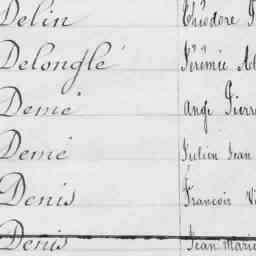 Delin Théodore
Delonglé Jérémie
Demé Ange Pierre
Demé Julien Jean
Denis François
Denis Jean Marie